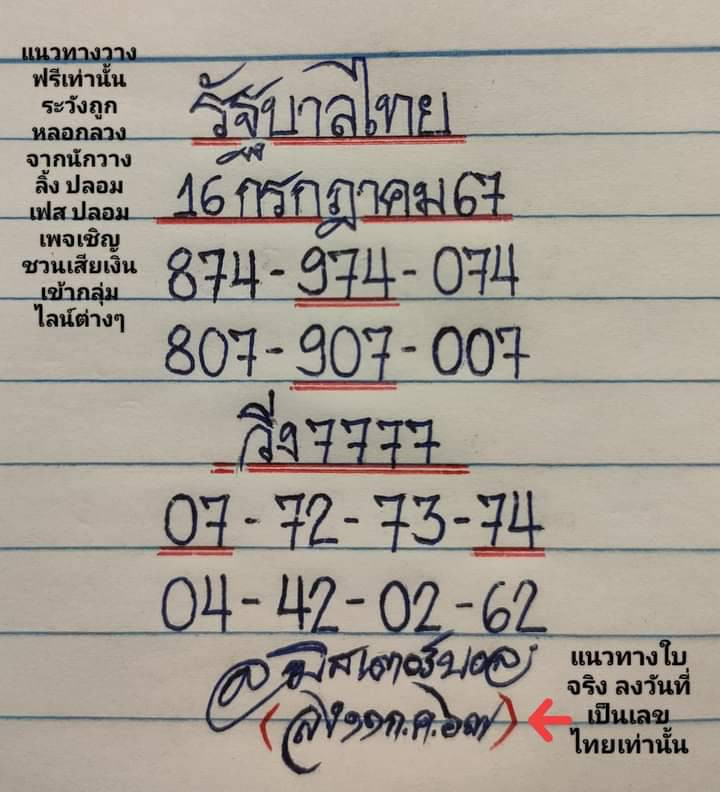 แนวทางวาง
ฟรีเท่านั้น
ระวังถูก
หลอกลวง
จากนักวาง
ลิ้ง ปลอม
เฟส ปลอม
เพจเชิญ
ชวนเสียเงิน
เข้ากลุ่ม
ไลน์ต่างๆ
รัฐบาลไทย
16 กรกฎาคม 67
874-974-074
807-907-007
วิ่ง 7777
07-72-73-74
04-42-02-62
มิสเตอร์บอล
(ลง ๑๑ ก.ค. ๖๗)
แนวทางใบ
จริง ลงวันที่
เป็นเลข
ไทยเท่านั้น